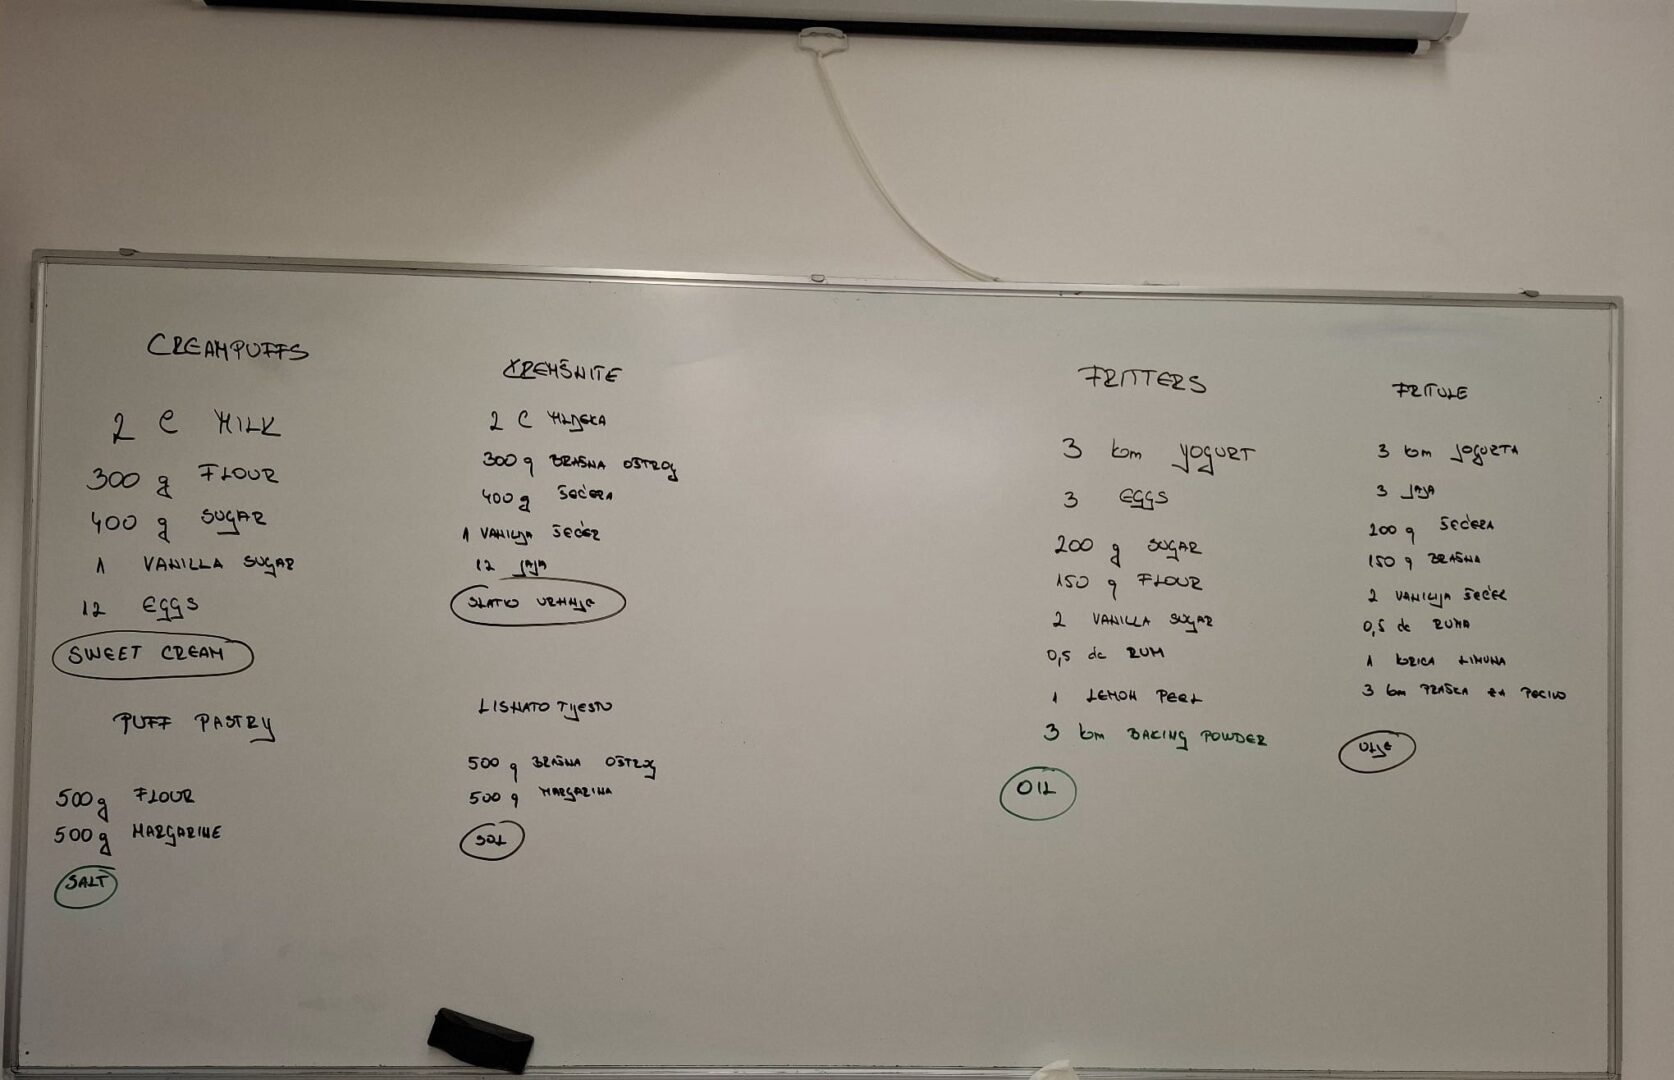 CREAMPUFFS
2 C MILK
300 g FLOUR
400 g SUGAR
1 VANILLA SUGAR
12 EGGS
SWEET CREAM
PUFF PASTRY
500 g FLOUR
500 g MARGARINE
SALT
KREMŠNITE
2 C MLJEKA
300 g BRAŠNA OŠTROG
400 g ŠEĆERA
1 VANILIJA ŠEĆER
12 JAJA
SLATKO VRHNJE
LISNATO TIJESTO
500 g BRAŠNA OŠTROG
500 g MARGARINA
SOL
FRITTERS
3 kom YOGURT
3 EGGS
200 g SUGAR
150 g FLOUR
2 VANILLA SUGAR
0,5 dc RUM
1 LEMON PEEL
3 kom BAKING POWDER
OIL
FRITULE
3 kom JOGURTA
3 JAJA
200 g ŠEĆERA
150 g BRAŠNA
2 VANILIJA ŠEĆER
0,5 dc RUMA
1 KORICA LIMUNA
3 kom PRAŠKA ZA PECIVO
ULJE